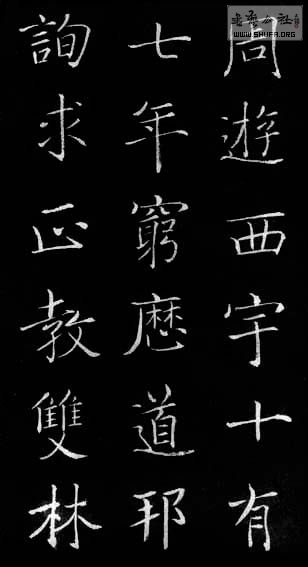 周遊西宇十有
七年窮歷道邦
詢求正教雙林
WWW.SHUFA.ORG